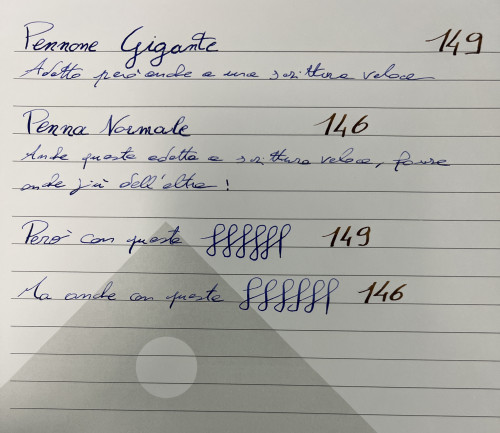 Pennone Gigante 149
Adatto però anche a una scrittura veloce
Penna Normale 146
Anche questa adatta a scrittura veloce, forse
anche più dell'altra!
Però con questa 149
Ma anche con questa 146